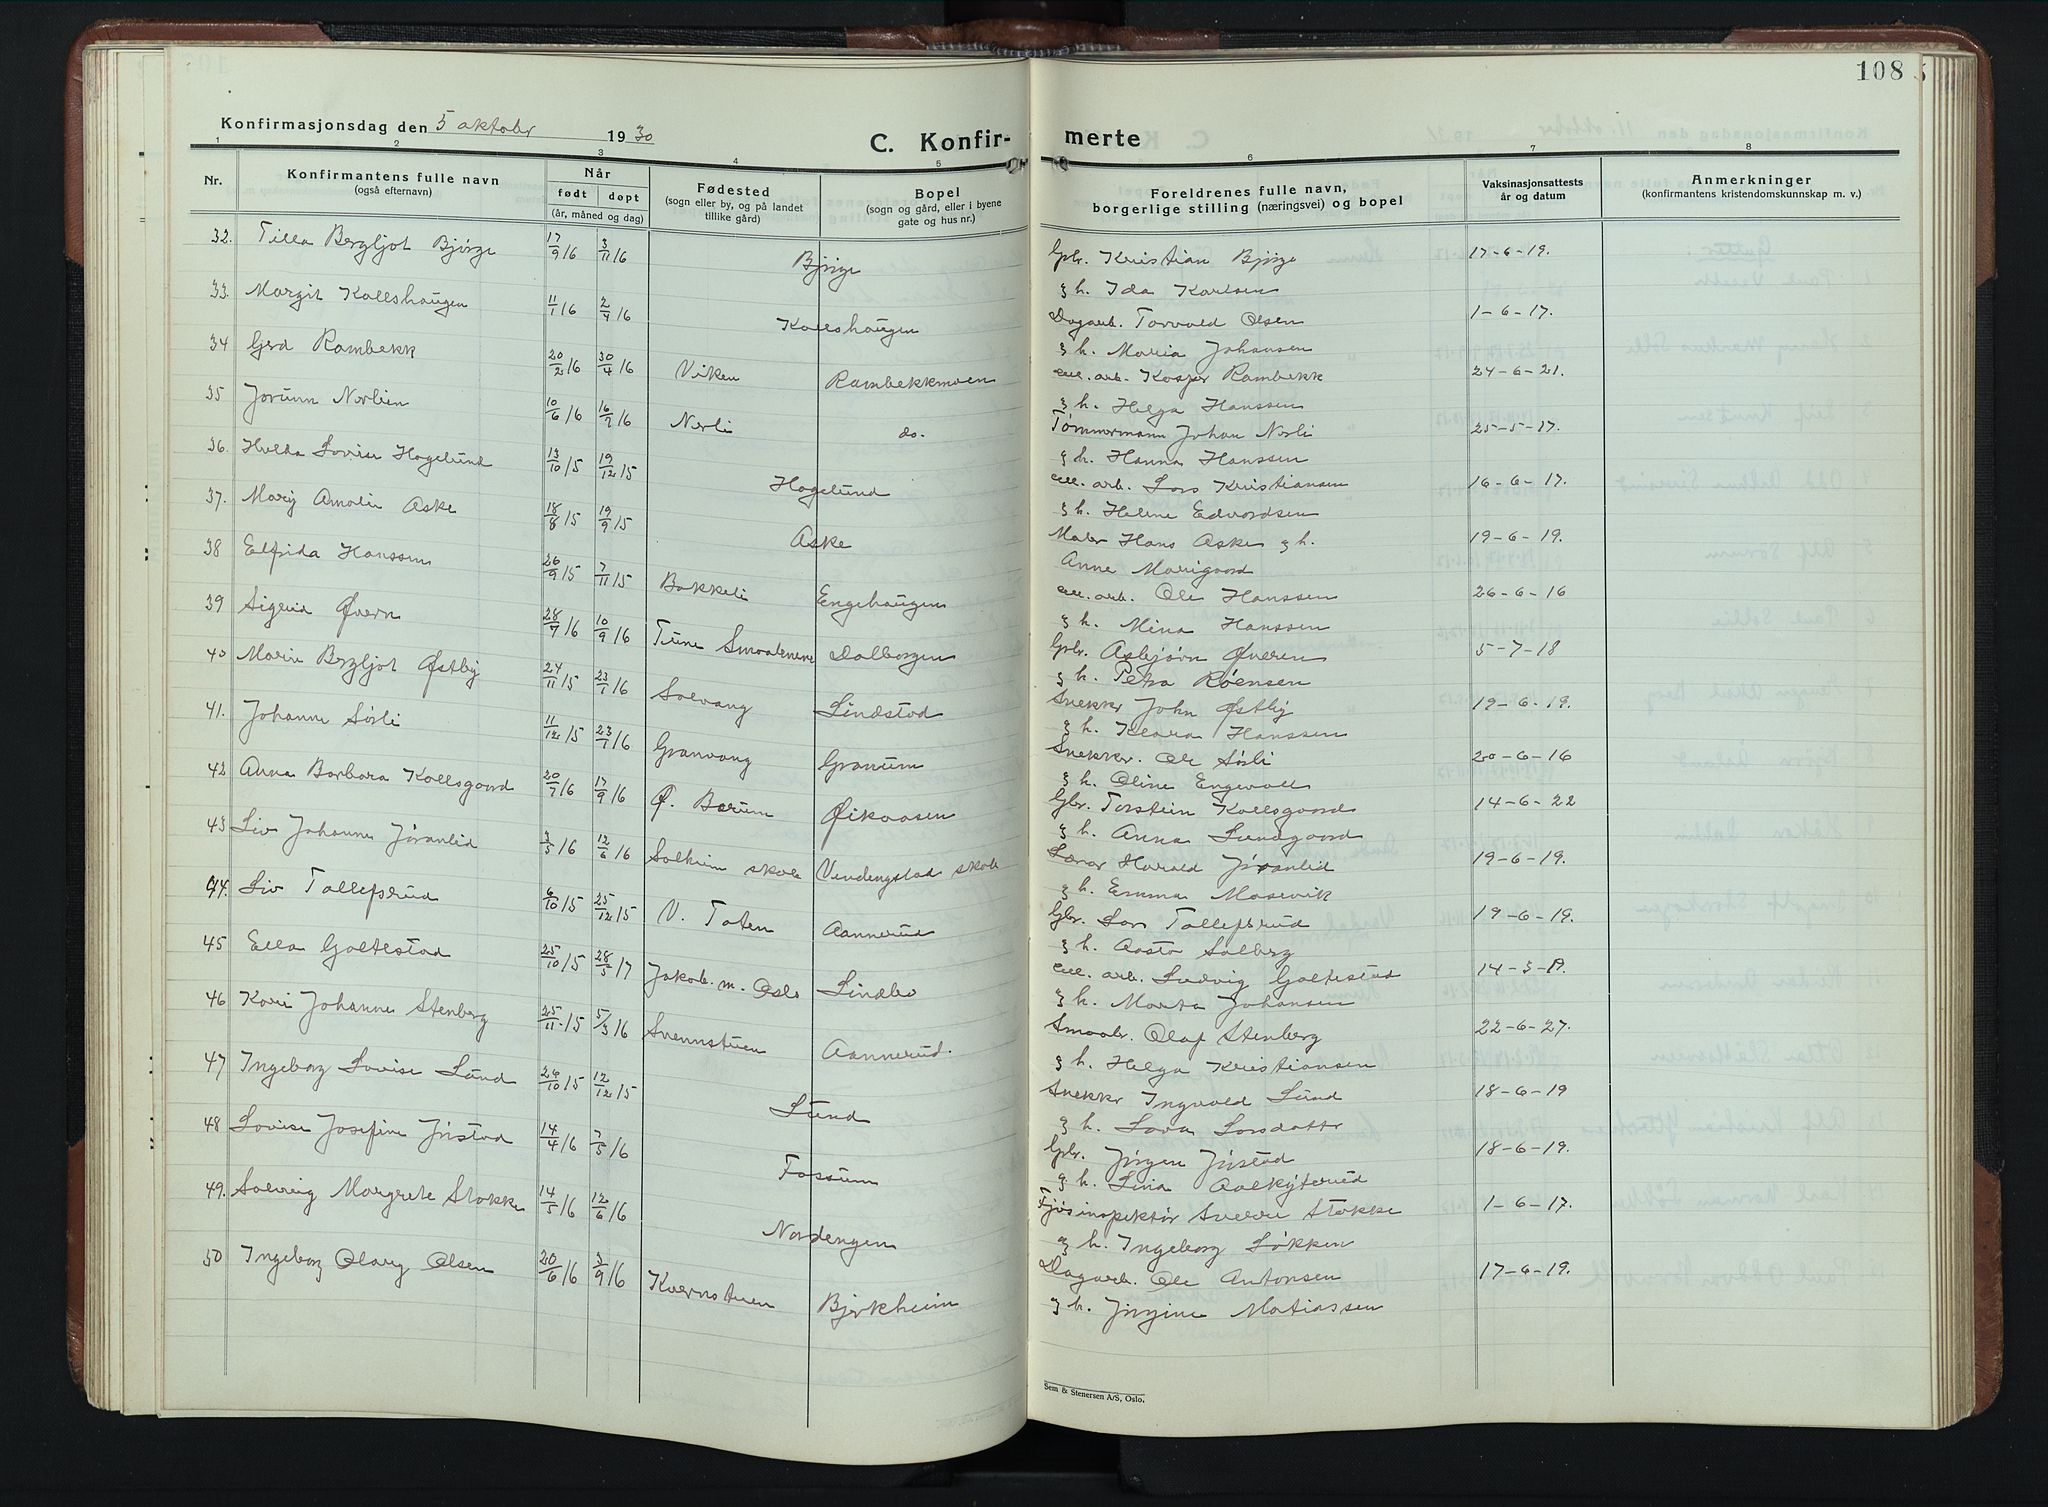 108
Konfirmasjonsdag den 5 oktober 1930
C. Konfirmerte
1 2 3 4 5 6 7 8
Nr.
Konfirmantens fulle navn
(også efternavn)
Når
født døpt
(år, måned og dag)
Fødested
(sogn eller by, og på landet
tillike gård)
Bopel
(sogn og gård, eller i byene
gate og hus nr.)
Foreldrenes fulle navn,
borgerlige stilling (næringsvei) og bopel
Vaksinasjonsattests
år og datum
Anmerkninger
(konfirmantens kristendomskunnskap m. v.)
32. Tilla Bergljot Bjørge 17/9 16 3/11 16 Bjørge Gbr. Kristian Bjørge 17-6-19.
g h. Ida Karlsen
33. Margit Kollshaugen 11/1 16 2/4 16 Kollshaugen Dagarb. Torvald Olsen 1-6-17.
g h. Maria Johansen
34 Gerd Rambekk 20/2 16 30/4 16 Viken Rambekkmoen cell. arb. Kasper Rambekk 24-6-21.
g h. Helga Hanssen
35 Jorunn Nerlien 10/6 16 16/9 16 Nerli do. Tømmermann Johan Nerli 25-5-17.
g h. Hanna Hanssen
36. Hulda Lovise Hagelund 13/10 15 19/12 15 Hagelund cell. arb. Lars Kristiansen 16-6-17.
g h. Helene Edvardsen
37. Mary Amalie Aske 18/8 15 19/9 15 Aske Maler Hans Aske g h. 19-6-19.
Anne Marigaard
38 Elfrida Hanssen 26/9 15 7/11 15 Bakkeli Engehaugen cell. arb. Ole Hanssen 26-6-16
g h. Mina Hanssen
39 Sigrid Øvern 28/7 16 10/9 16 Tune Smaalenene Dalborgen Gbr. Asbjørn Øveren 5-7-18
g h. Petra Røensen
40 Marie Bergljot Østby 24/11 15 23/1 16 Solvang Lindstad Snekkr John Østby 19-6-19.
g h. Klara Hanssen
41. Johanne Sørli 11/12 15 23/1 16 Granvang Granum Snekkr. Ole Sørli 20-6-16
g h. Oline Engevoll
42 Anna Barbara Kollsgaard 20/7 16 17/9 16 Ø. Berum Øikaasen Gbr. Torstein Kollsgaard 14-6-22
g h. Anna Lundgaard
43 Liv Johanne Jøranlid 3/5 16 12/6 16 Solheim skole Vendengstad skole Lærer Harald Jøranlid 19-6-19.
g h. Emma Masevik
44. Liv Tollefsrud 6/10 15 25/12 15 V. Toten Aannerud Gbr. Lars Tollefsrud 19-6-19.
g h. Aasta Solberg
45 Ella Galtestad 25/10 15 28/5 17 Jakob. m. Oslo Lindbo cell. arb. Ludvig Galtestad
g h. Marta Johansen
46 Kari Johanne Stenberg 25/11 15 5/3 16 Svennstuen Aannerud. Smaabr. Olaf Stenberg 22-6-27.
g h. Helga Kristiansen
47 Ingeborg Lovise Lund 26/10 15 12/12 15 Lund Snekkr Ingvald Lund 18-6-19
g h. Lova Larsdattr
48 Lovise Josefine Jørstad 14/4 16 7/5 16 Fossum Gbr. Jørgen Jørstad 18-6-19.
g h. Lina
49. Solveig Margrete Stokke 14/5 16 12/6 16 Nordengen Fjøsinspektør Sverre Stokke 1-6-17.
g h. Ingeborg Løkken
50 Ingeborg Olavy Olsen 20/6 16 3/9 16 Kvernstuen Bjerkheim Dagarb. Ole Antonsen 17-6-19.
g h. Jørgine Matiassen
Sem & Stenersen A/S, Oslo.